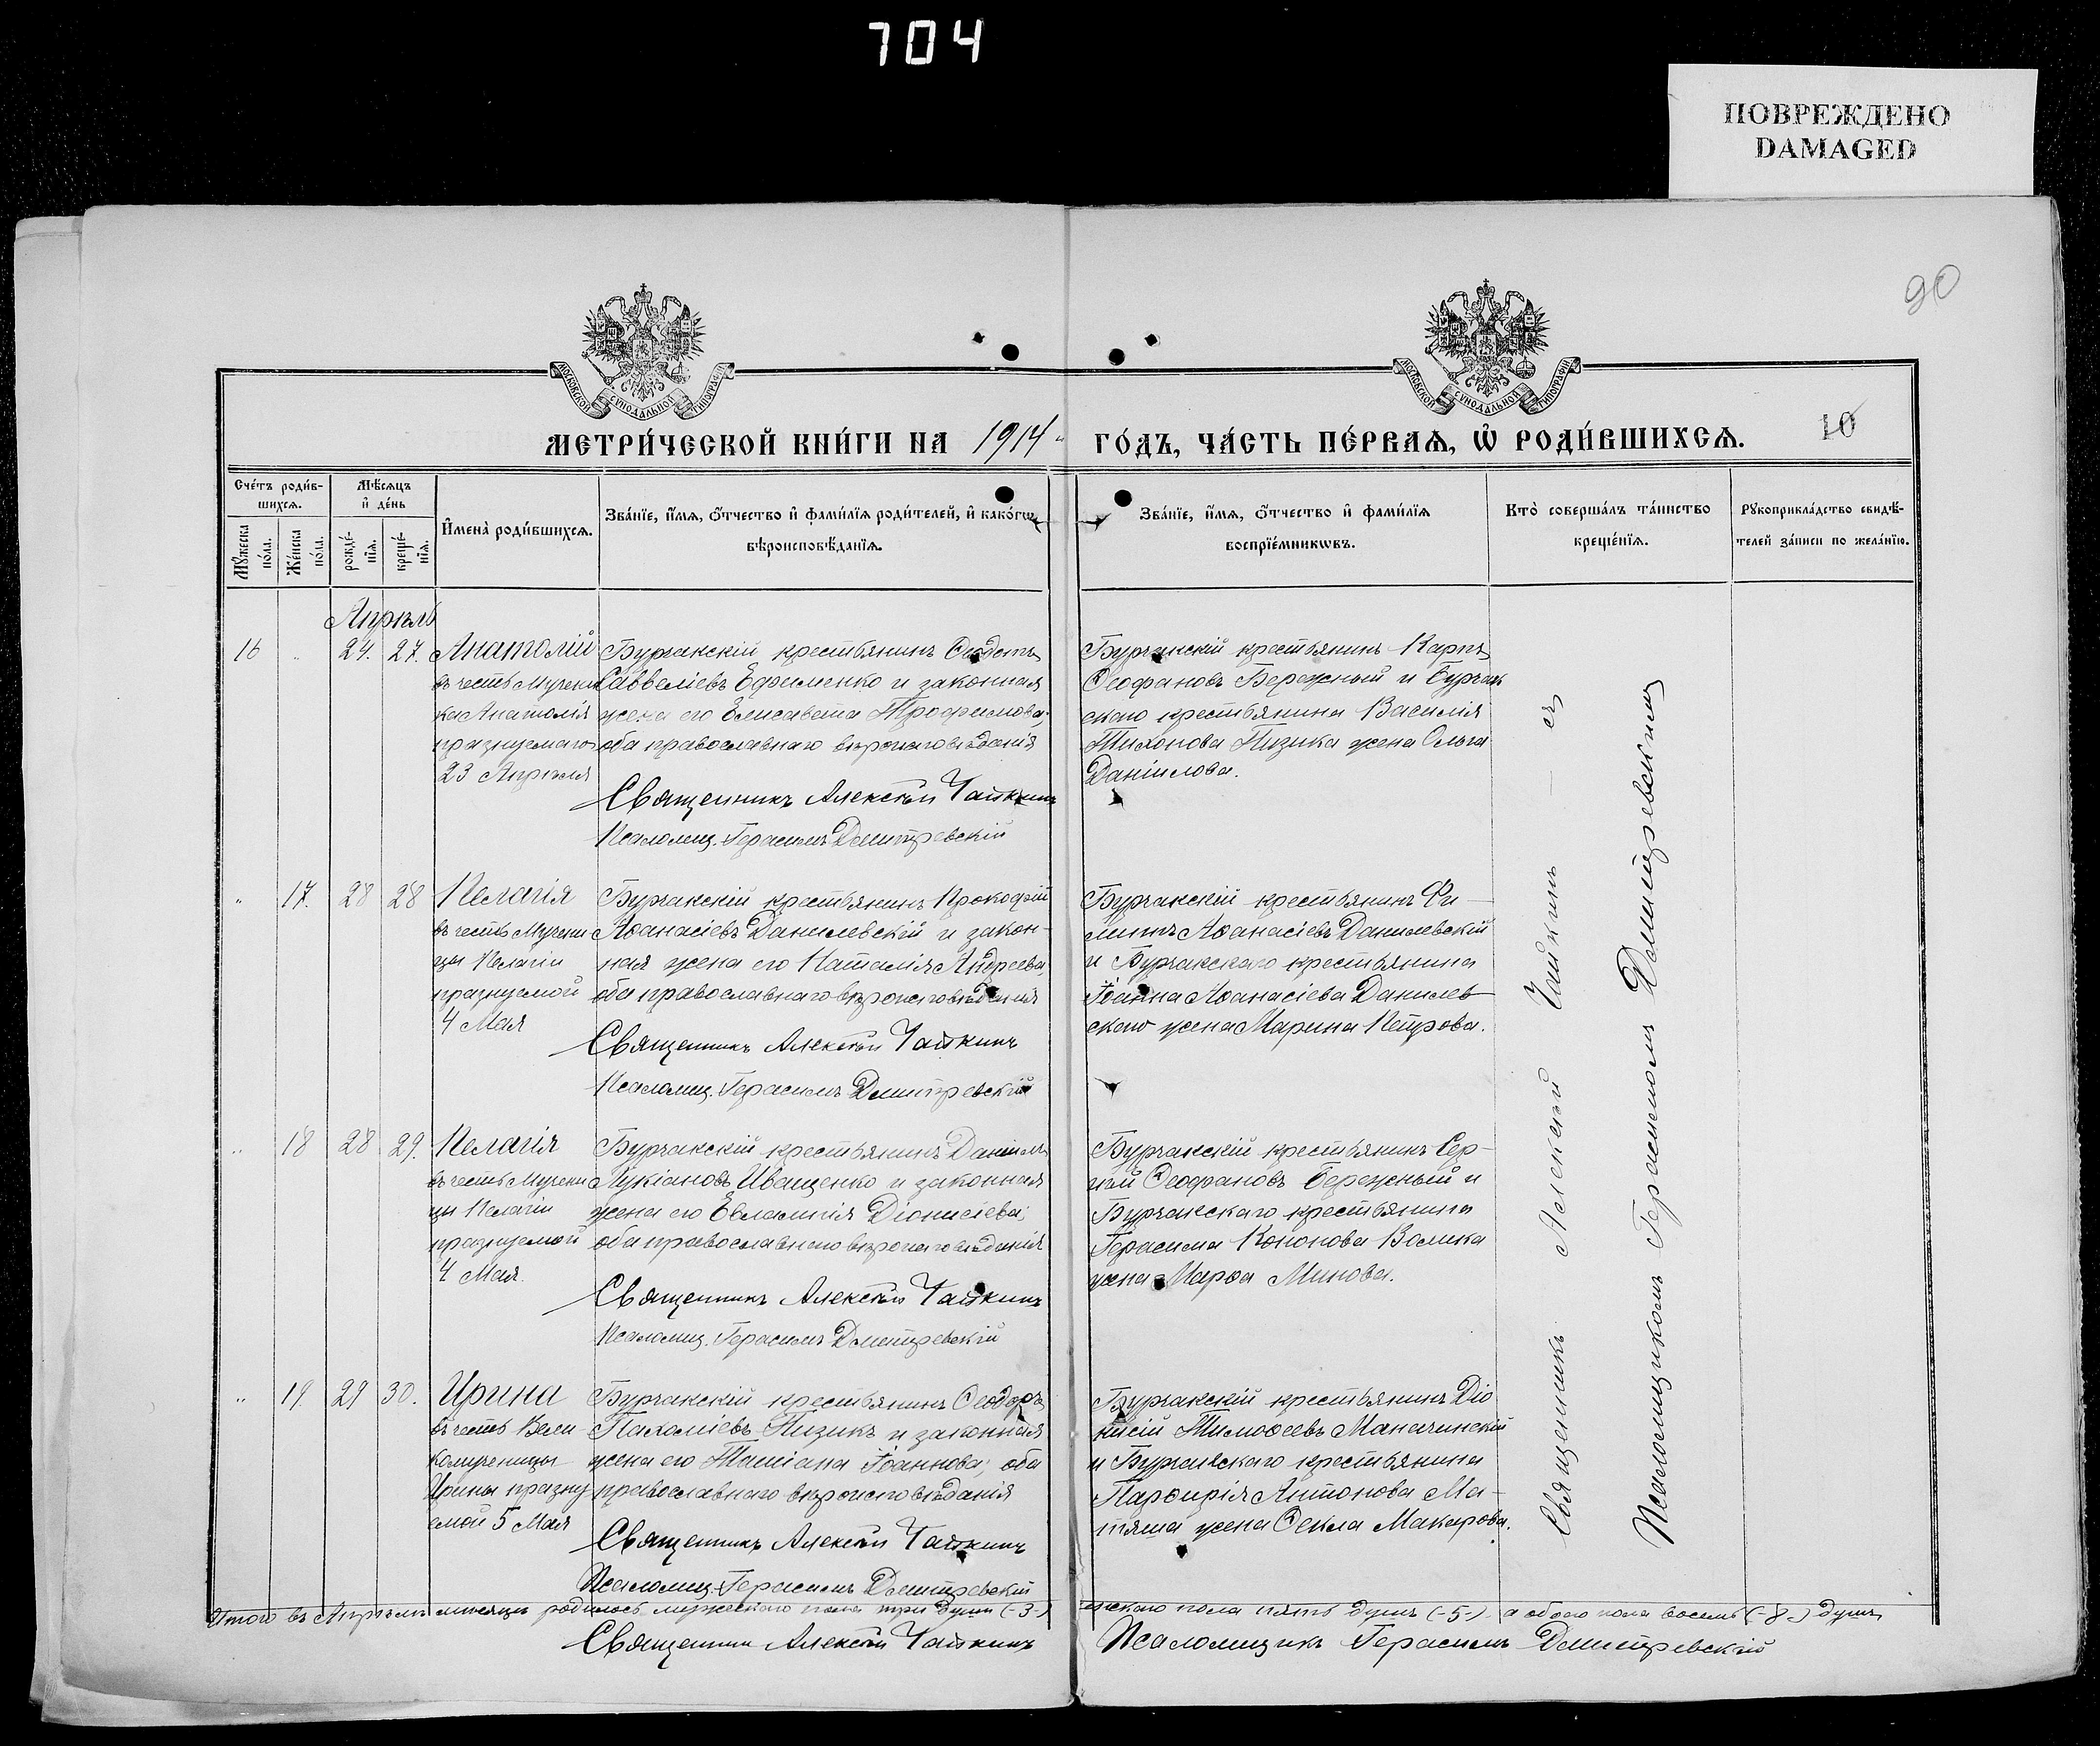 704
ПОВРЕЖДЕНО
DAMAGED
90
МОСКОВСКОЙ СѴНОДАЛЬНОЙ ТИПОГРАФІИ
МОСКОВСКОЙ СѴНОДАЛЬНОЙ ТИПОГРАФІИ
МЕТРИ́ЧЕСКОЙ КНИ́ГИ НА 1914 ГО́ДЪ, ЧА́СТЬ ПЕ́РВАѦ, Ѡ҆ РОДИ́ВШИХСѦ.
10
Сче́тъ роди́в-
шихсѧ.
Мѣ́сѧцъ
и҆ де́нь
Мꙋ́жеска
по́ла.
Же́нска
по́ла.
рожде́-
нїѧ.
креще́-
нїѧ.
И҆мена̀ роди́вшихсѧ.
Зва́нїе, и҆́мѧ, ѻ҆́тчество и҆ фами́лїѧ роди́телей, и҆ како́гѡ
вѣроисповѣ́данїѧ.
Зва́нїе, и҆́мѧ, ѻ҆́тчество и҆ фами́лїѧ
воспрїе́мникѡвъ.
Кто̀ соверша́лъ та́инство
креще́нїѧ.
Рꙋкоприкла́дство свидѣ́-
телей за́писи по жела́нїю.
Апрѣль
16 „ 24. 27. Анатолій
въ честь Мучени
ка Анатолія
празнуемаго
23 Апрѣля
Бурчакскій крестьянинъ Ѳеодотъ
Савелліевъ Ефименко и законная
жена его Елисавета Трофимова;
оба православнаго вѣроисповѣданія
Священникъ Алексѣй Чайкинъ
Псаломщ. Герасимъ Дмитревскій
Бурчакскій крестьянинъ Карпъ
Ѳеофановъ Бережный и Бурчак
скаго крестьянина Василія
Тихонова Пизика жена Ольга
Даніилова.
„ 17. 28 28 Пелагія
въ честь Мучени
цы Пелагіи
празнуемой
4 Мая
Бурчакскій крестьянинъ Прокофій
Аѳанасіевъ Данилевскій и закон-
ная жена его Наталія Андреева;
оба православнаго вѣроисповѣданія
Священникъ Алексѣй Чайкинъ
Псаломщ. Герасимъ Дмитревскій
Бурчакскій крестьянинъ Фи-
липпъ Аѳанасіевъ Данилевскій
и Бурчакскаго крестьянина
Іоанна Аѳанасіева Данилев-
скаго жена Марина Петрова.
„ 18 28 29. Пелагія
въ честь Мучени
цы Пелагіи
празнуемой
4 Мая.
Бурчакскій крестьянинъ Даніилъ
Лукіановъ Иващенко и законная
жена его Евлампія Діонисіева;
оба православнаго вѣроисповѣданія
Священникъ Алексѣй Чайкинъ
Псаломщ. Герасимъ Дмитревскій
Бурчакскій крестьянинъ Сер-
гій Ѳеофановъ Бережный и
Бурчакскаго крестьянина
Герасима Кононова Волика
жена Марѳа Минова.
„ 19. 29 30. Ирина
въ честь Вели
комученицы
Ирины празну-
емой 5 Мая
Бурчакскій крестьянинъ Ѳеодоръ
Пахоміевъ Пизикъ и законная
жена его Татіана Іоаннова; оба
православнаго вѣроисповѣданія
Священникъ Алексѣй Чайкинъ
Псаломщ. Герасимъ Дмитревскій
Бурчакскій крестьянинъ Діо
нисій Тимоѳеевъ Маначинскій
и Бурчакскаго крестьянина
Парфирія Антонова Ма-
тяша жена Ѳекла Макарова.
Священникъ Алексѣй Чайкинъ – съ
Псаломщикомъ Герасимомъ Дмитревскимъ
Итого въ Апрѣлѣ мѣсяцѣ родилось мужескаго пола три души (-3-) женскаго пола пять душъ (-5-) а обоего пола восемь (-8-) душъ
Священникъ Алексѣй Чайкинъ Псаломщикъ Герасимъ Дмитревскій